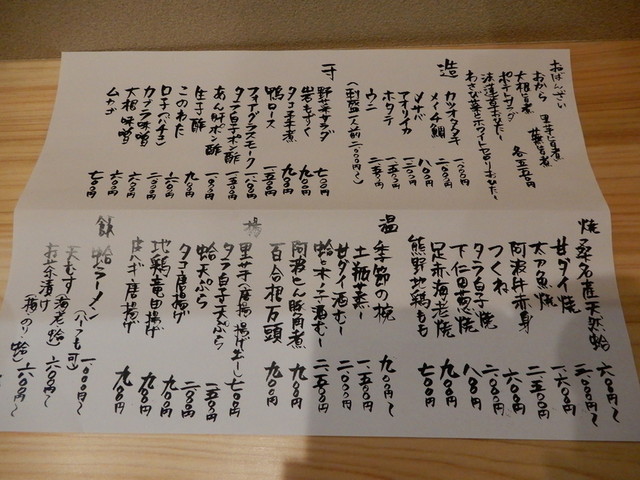 おばんざい
おから 里芋旨煮
大根旨煮 蕪旨煮
ポテトサラダ 各五五〇円
法蓮草おひたし
わさび菜とホワイトセロリおひたし
造
カツオタタキ 一八〇〇円
メイチ鯛
〆サバ
アオリイカ
ホタテ
ウニ
(刺盛一人前二〇〇〇円〜)
寸
野菜サラダ 七〇〇円
岩もずく 九〇〇円
タコ柔煮 九〇〇円
鴨ロース 一五〇〇円
フォアグラスモーク 一八〇〇円
タラ白子ポン酢 一五〇〇円
あん肝ポン酢
生子酢
このわた 九〇〇円
口子(バチコ)
カブラ味噌
大根味噌 六〇〇円
ムカゴ 七〇〇円
焼
桑名産天然蛤 六〇〇円〜
甘ダイ焼 二〇〇〇円〜
太刀魚焼 一六〇〇円
阿波牛赤身 二五〇〇円
つくね 六〇〇円
タラ白子焼
下仁田葱焼 八〇〇円
足赤海老焼 九〇〇円
熊野地鶏もも 七〇〇円
温
季節の椀 九〇〇円〜
土瓶蒸し 一五〇〇円
甘ダイ酒むし 二〇〇〇円
蛤と木ノ子酒むし 二五〇〇円
阿波とん豚角煮 九〇〇円
百合根万頭 九〇〇円
揚
里芋(唐揚 揚げ出し) 七〇〇円
タラ白子天ぷら 一五〇〇円
蛤天ぷら
タコ唐揚げ
地鶏竜田揚げ 九〇〇円
皮ハギ唐揚げ 九〇〇円
飯
蛤ラーメン (ハーフも可) 一〇〇〇円〜
天むす(海老 蛤) 六〇〇円〜
お茶漬け(海のり 蛤) 六〇〇円〜